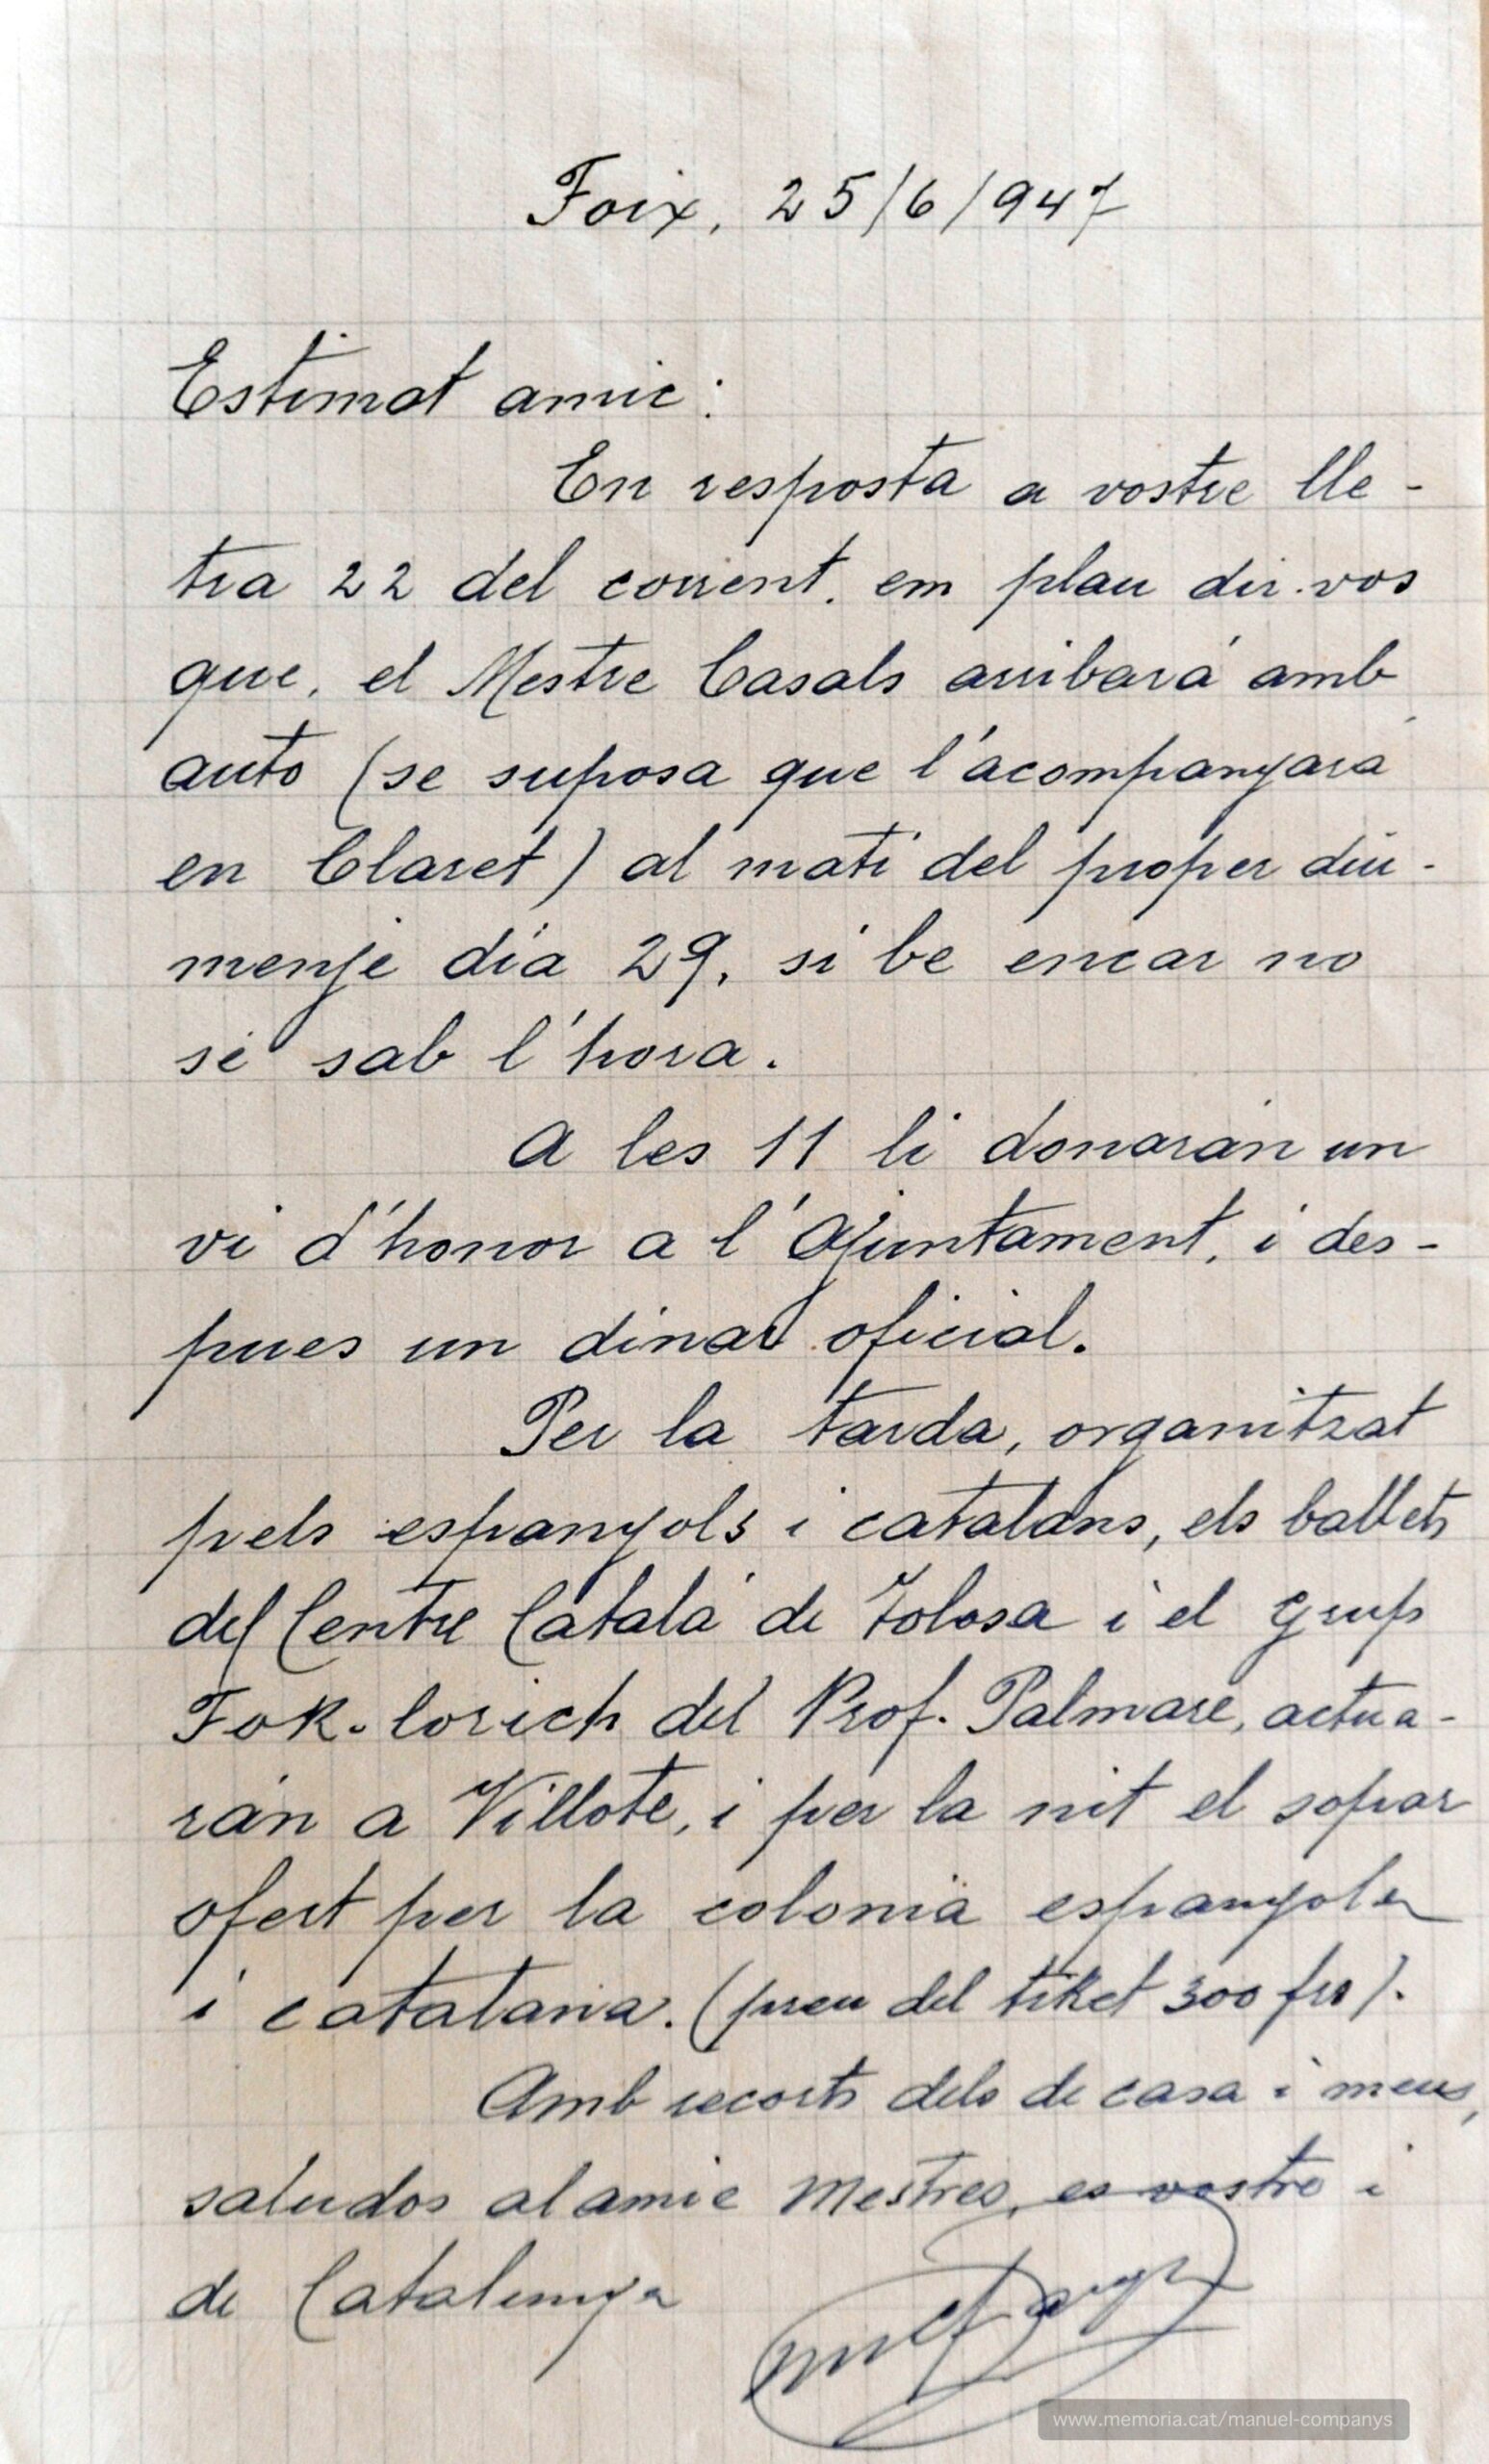 Foix, 25/6/947
Estimat amic:
En resposta a vostre lle-
tra 22 del corrent. em plau dir.vos
que, el Mestre Casals arribará amb
auto (se suposa que l'acompanyará
en Claret) al matí del proper diu-
menje dia 29, si be encar no
se sab l'hora.
A les 11 li donarán un
vi d'honor a l'Ajuntament, i des-
pues un dinar oficial.
Per la tarda, organitzat
pels espanyols i catalans, els ballets
del Centre Catalá de Tolosa i el Grup
Fok-lorich del Prof. Palmare, actua-
rán a Villote, i per la nit el sopar
ofert per la colonia espanyola
i catalana. (preu del tiket 300 frs).
Amb recorts dels de casa i meus,
saludos al amic Mestres, es vostre i
de Catalunya
www.memoria.cat/manuel-companys